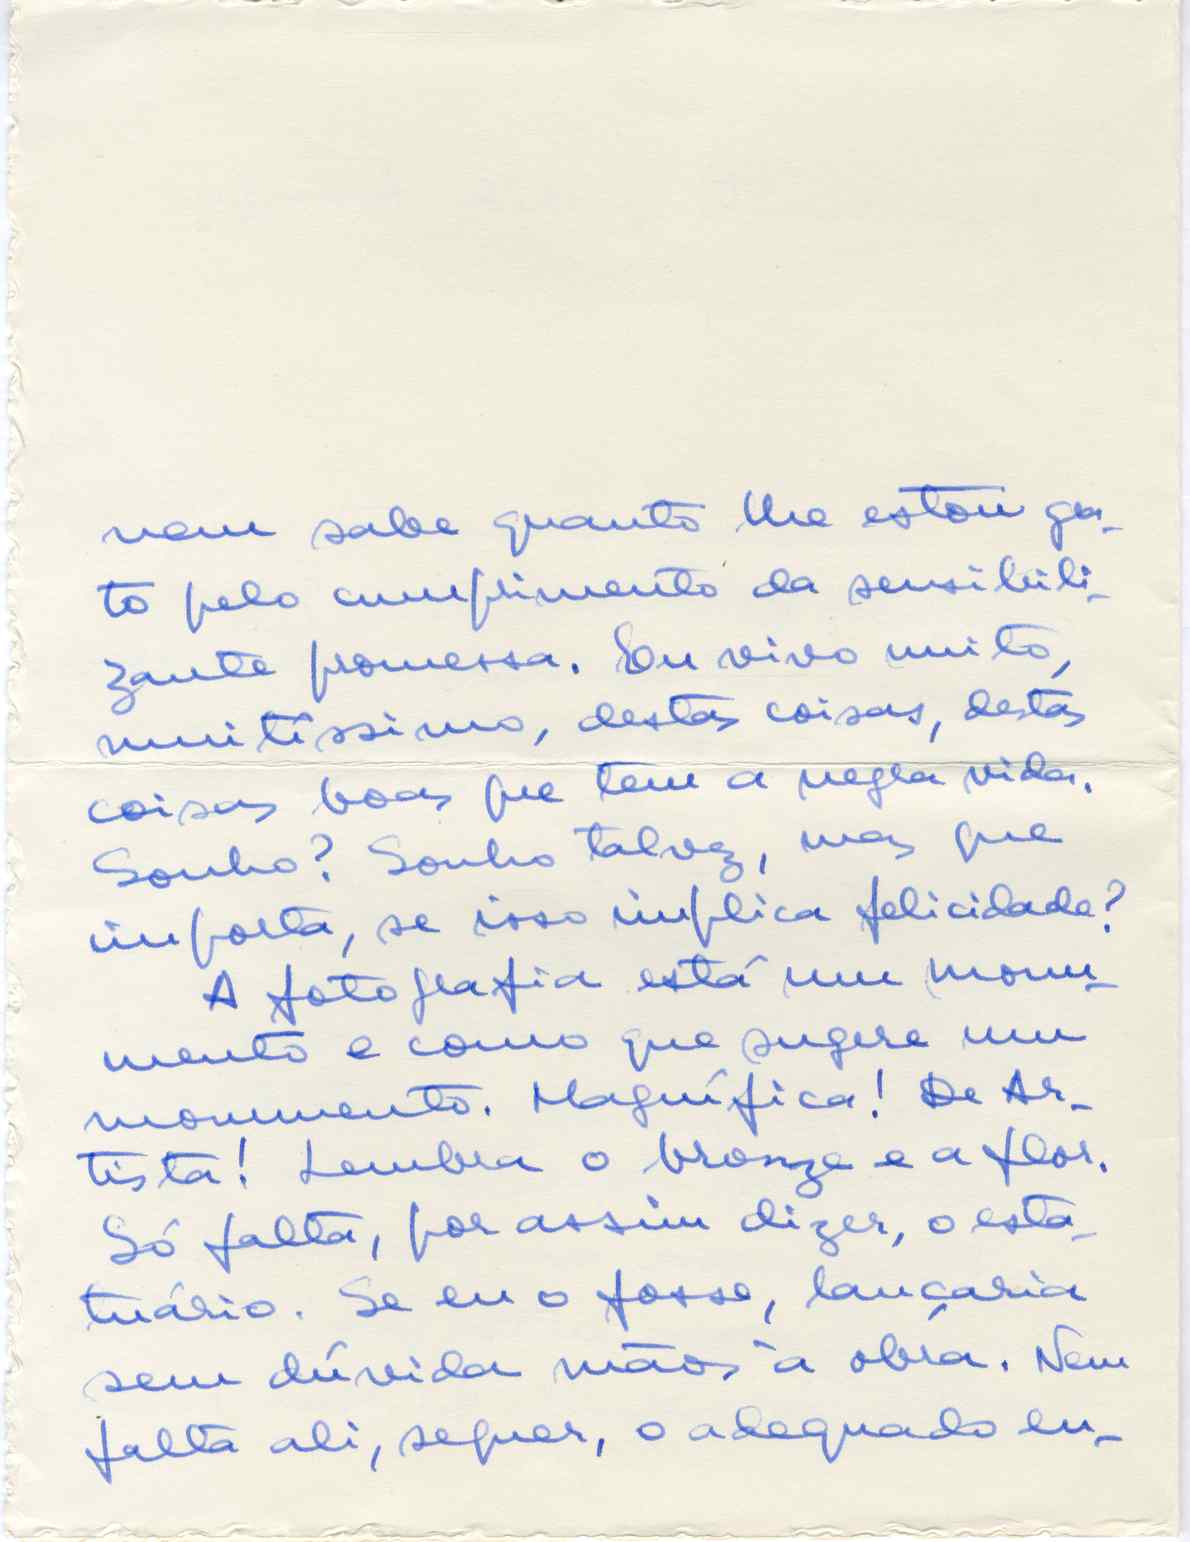 nem sabe quanto lhe estou gra-
to pelo cumprimento da sensibili-
zante promessa. Eu vivo muito,
muitíssimo, destas coisas, destas
coisas boas que tem a negra vida.
Sonho? Sonho talvez, mas que
importa, se isso implica felicidade?
A fotografia está um monu-
mento e como que sugere um
monumento. Magnífica! De Ar-
tista! Lembra o bronze e a flor.
Só falta, por assim dizer, o esta-
tuário. Se eu o fosse, lançaria
sem dúvida mãos à obra. Nem
falta ali, sequer, o adequado en-